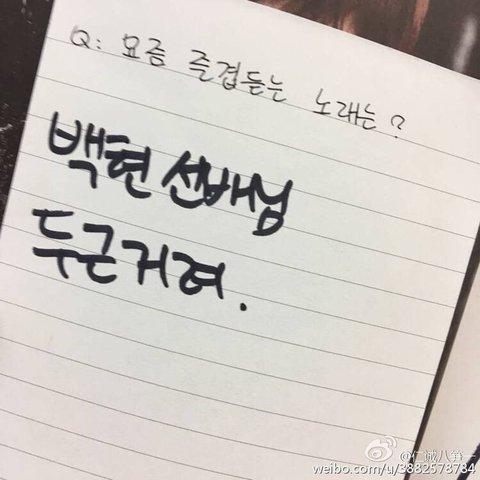 Q: 요즘 즐겁듣는 노래는?
백현 선배님
두근거려.
weibo.com/u/3882573784